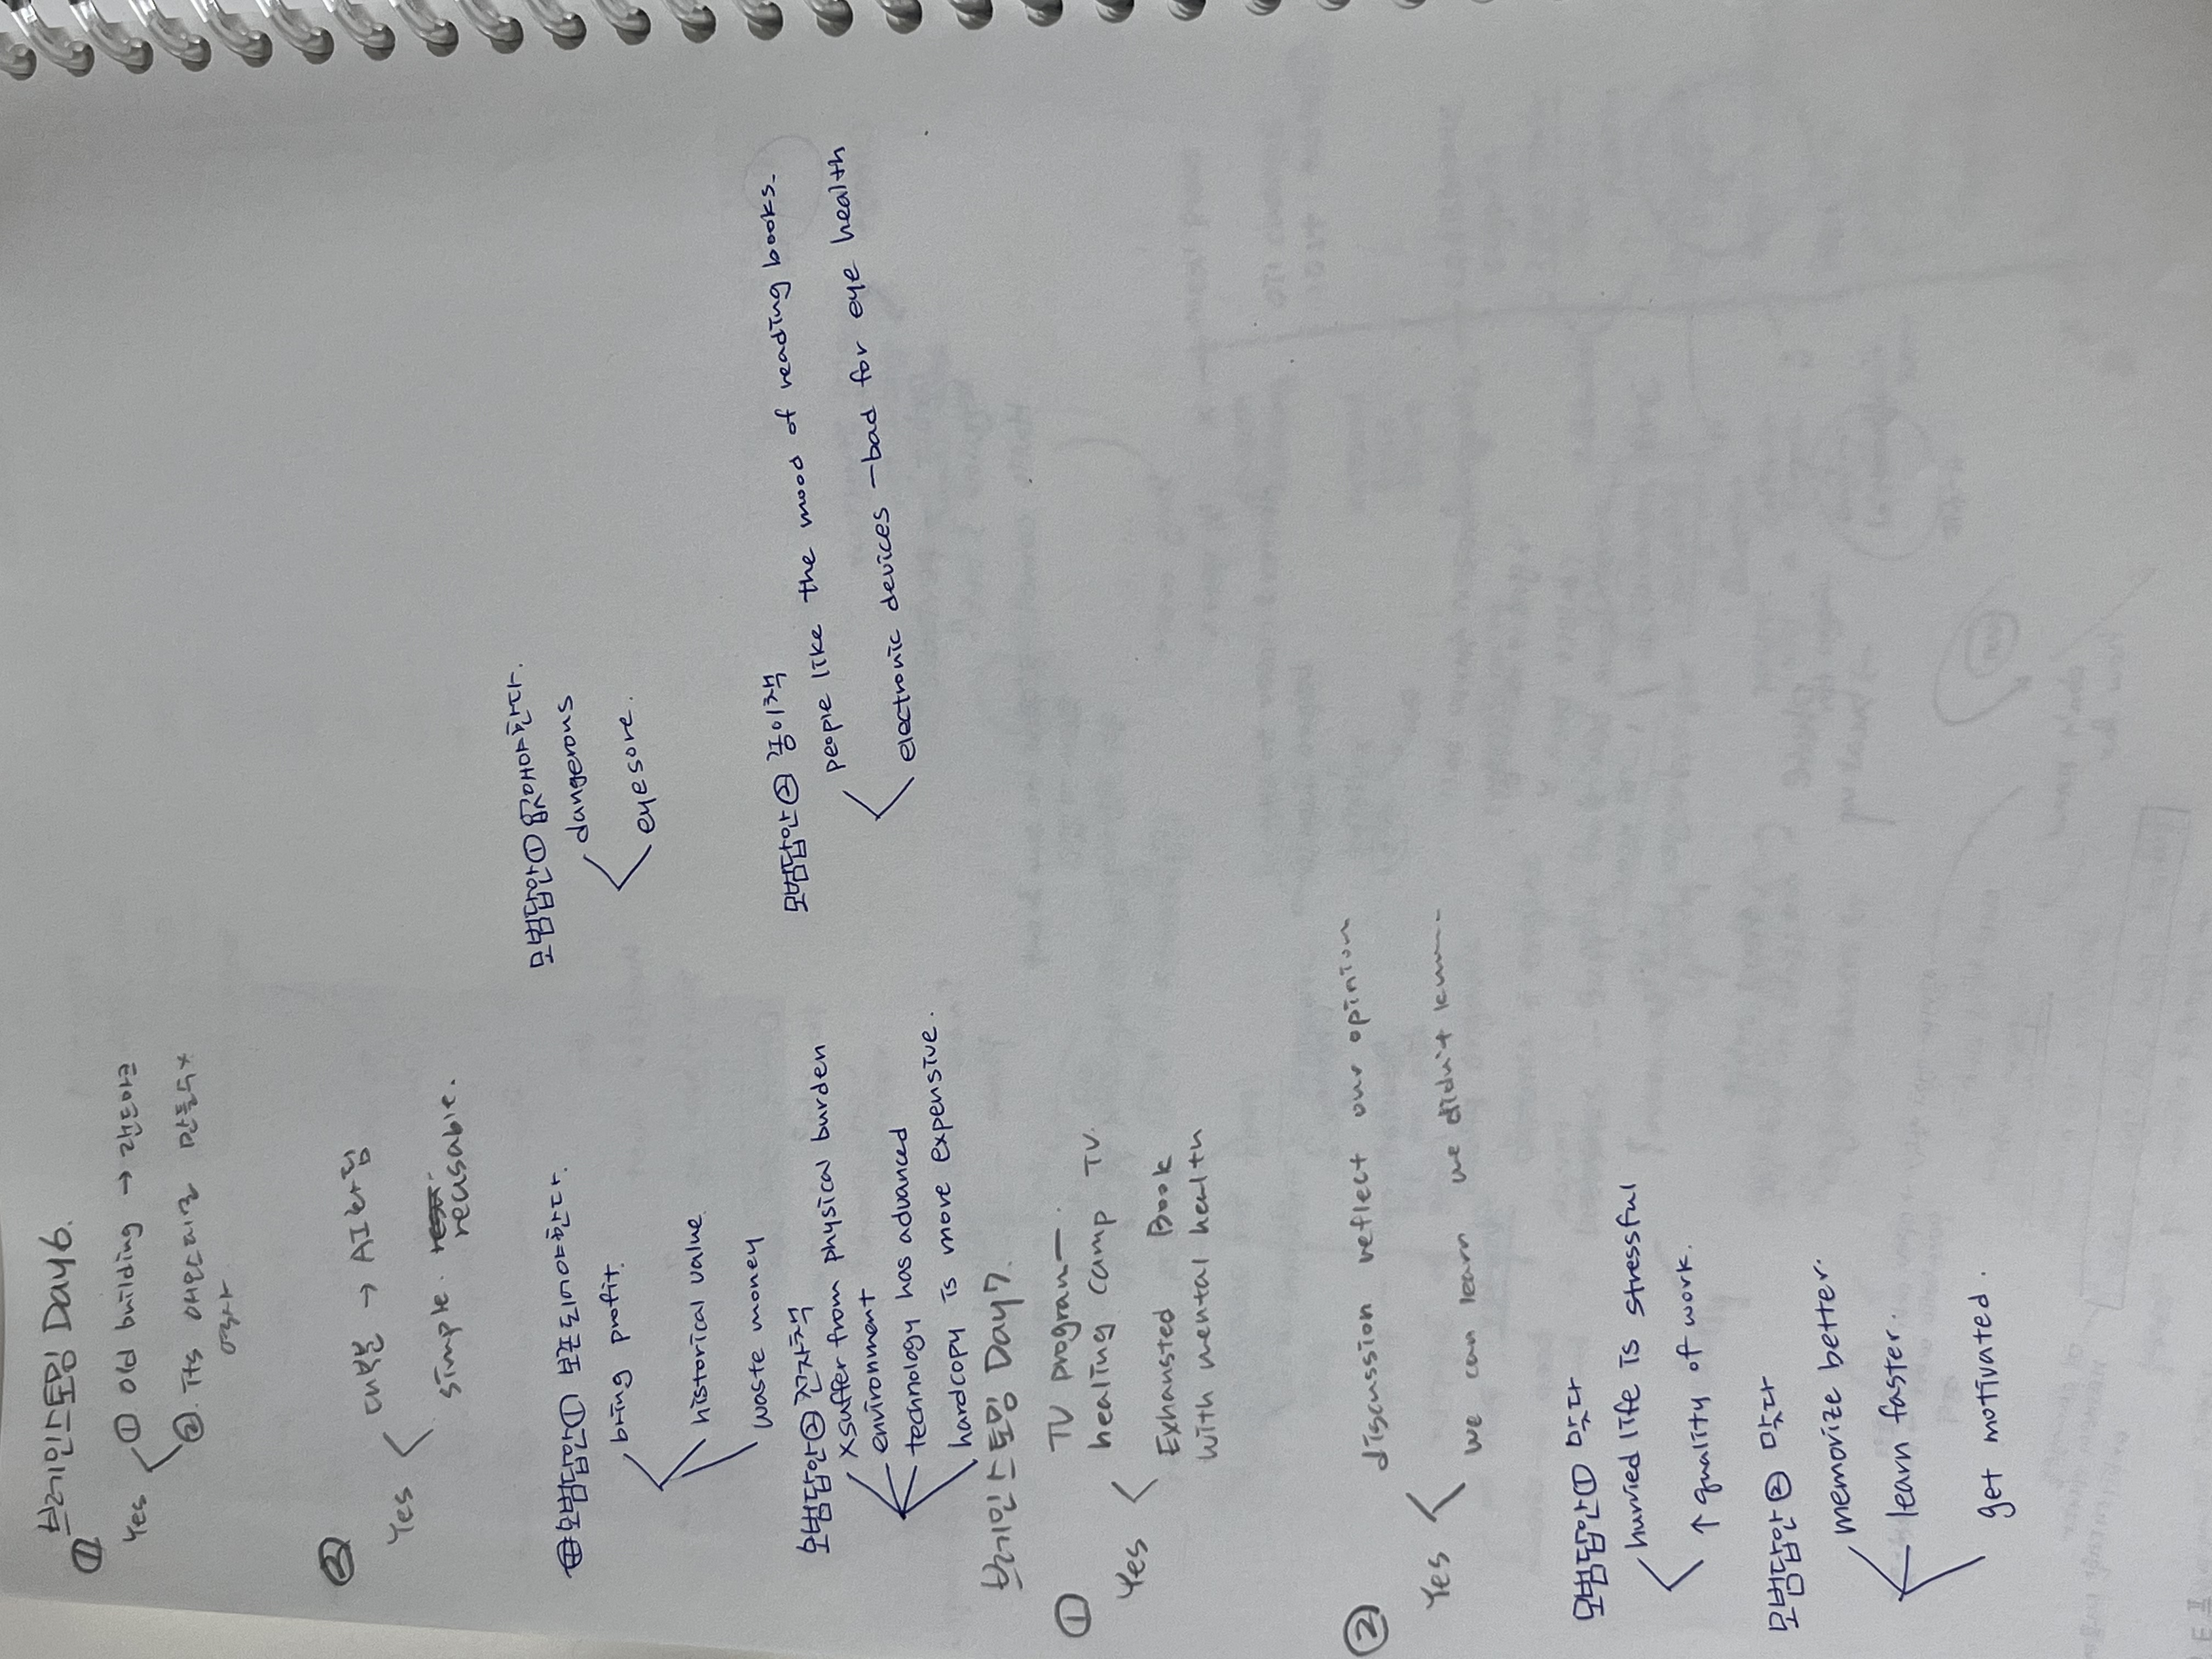 브레인스토밍 Day6.
①
Yes
① old building → 랜드마크
② its 해안드리로 만들녹x
②
Yes
대본 → AI사람
simple. reusable.
모범답안① 보존되어야한다.
bring profit.
historical value
waste money
모범답안① 없애야한다.
dangerous
eyesore.
모범답안② 전자책
x suffer from physical burden
environment
technology has advanced
hardcopy is more expensive.
모범답안② 종이책
people like the mood of reading books.
electronic devices - bad for eye health
브레인스토밍 Day7.
①
Yes
TV program—.
healing camp TV.
Exhausted Book
with mental health
②
Yes
discussion reflect our opinion
we can learn we didn't
모범답안① 맞다
hurried life is stressful
↑ quality of work.
모범답안② 맞다
memorize better.
learn faster.
get motivated.